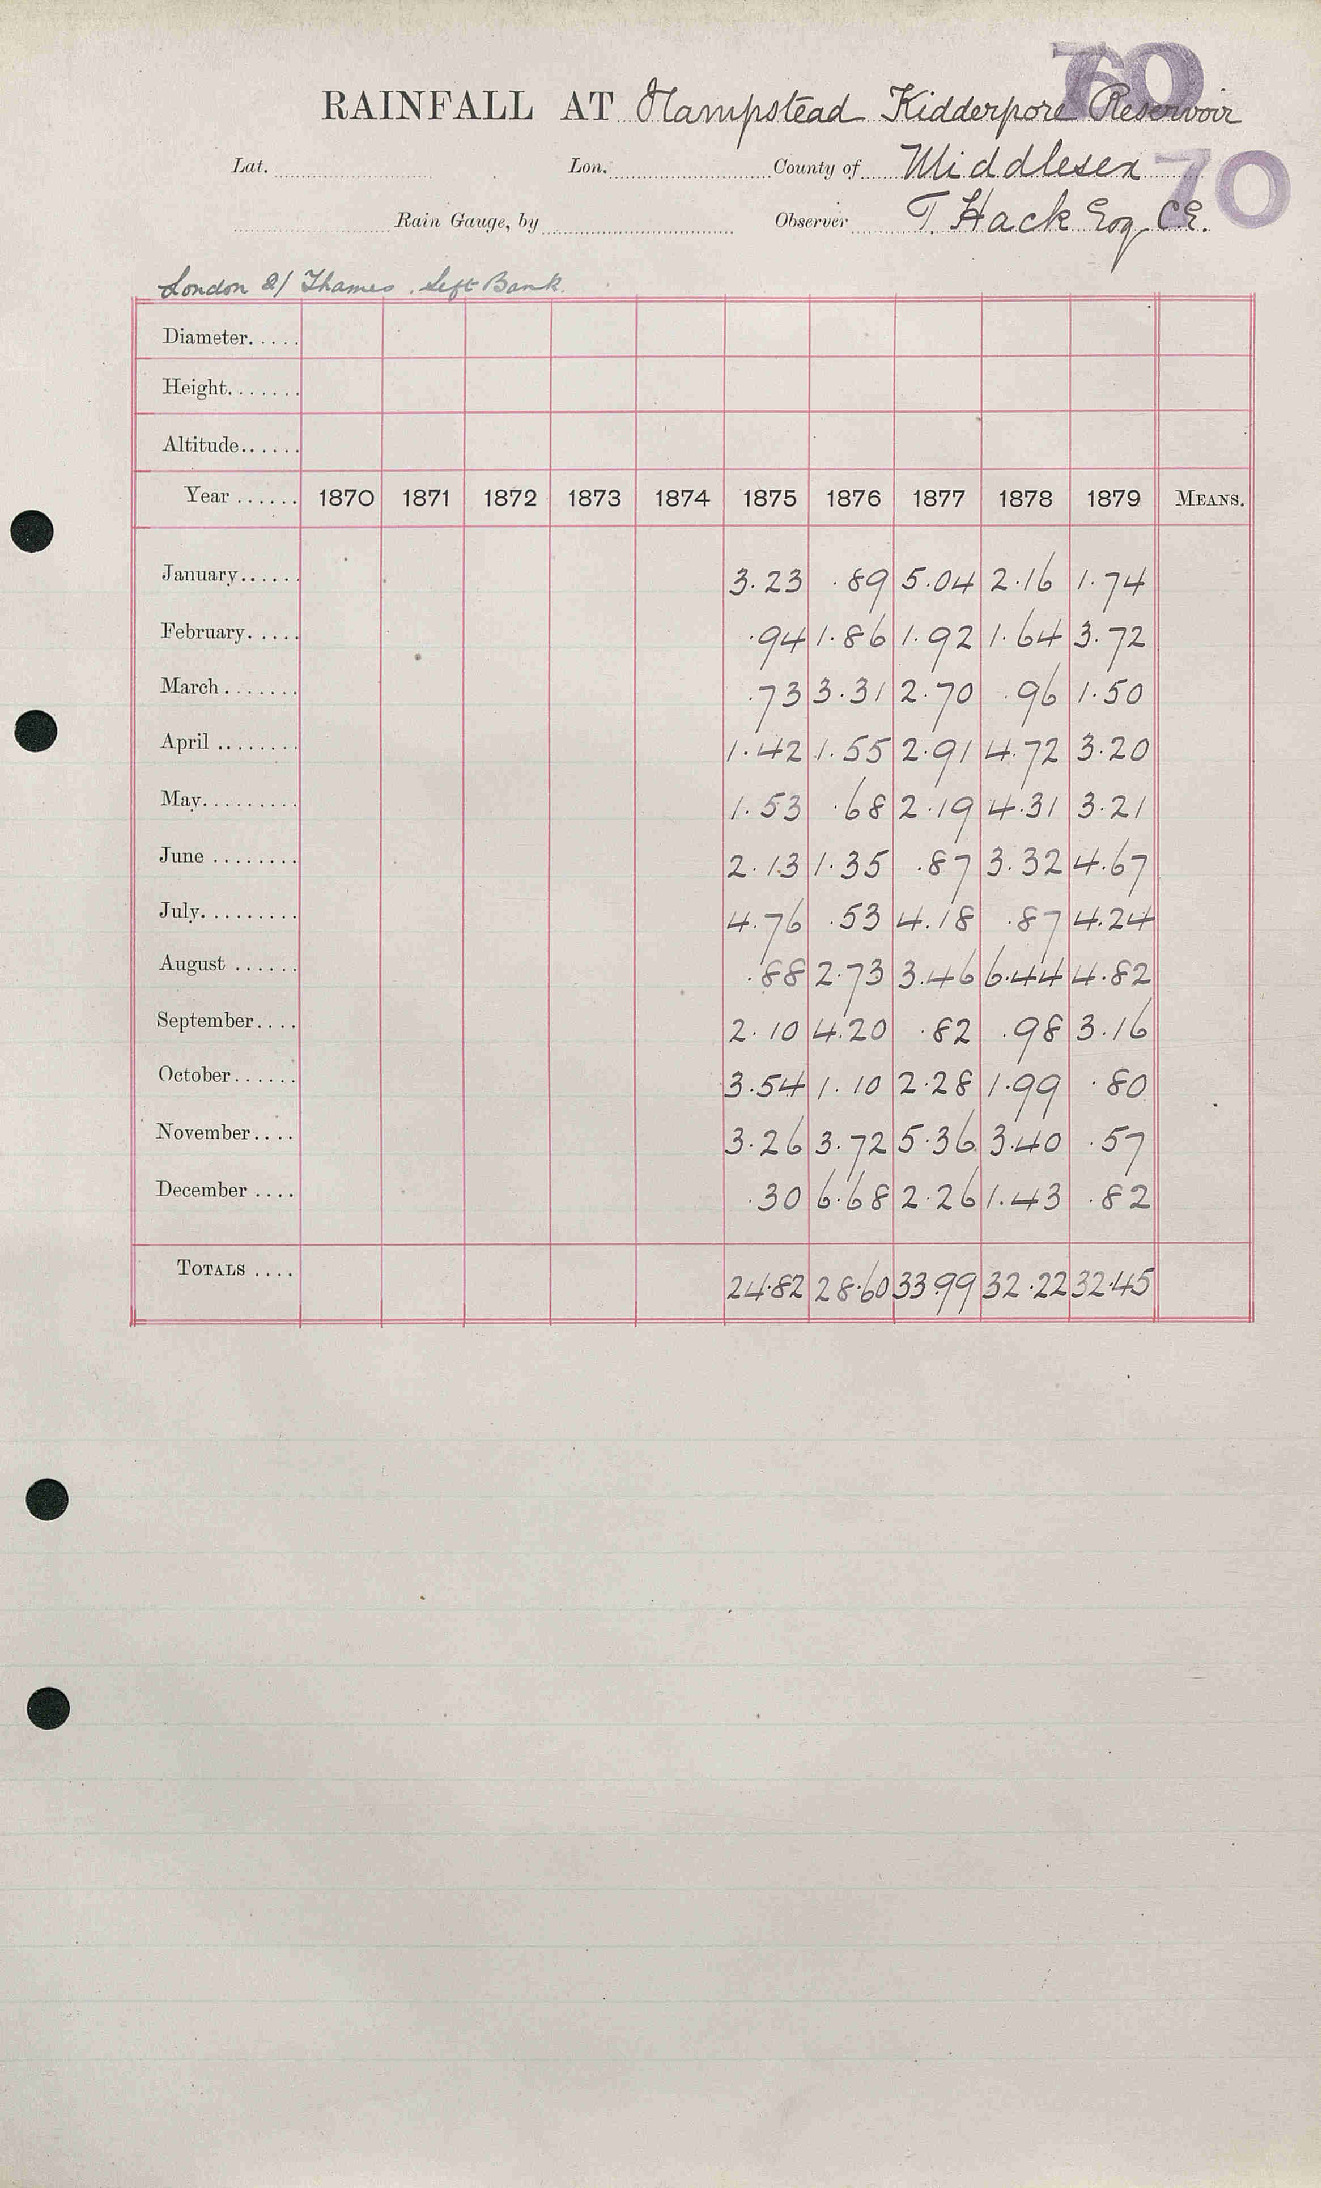 70
RAINFALL AT Hampstead Kidderpore Reservoir
Lat. Lon. County of Middlesex
70
Rain Gauge, by Observer T. Hack Esq CE.
London &/ Thames. Left Bank.
Diameter.....
Height.......
Altitude......
Year ...... 1870 1871 1872 1873 1874 1875 1876 1877 1878 1879 MEANS.
January...... 3.23 .89 5.04 2.16 1.74
February..... .94 1.86 1.92 1.64 3.72
March....... .73 3.31 2.70 .96 1.50
April ........ 1.42 1.55 2.91 4.72 3.20
May......... 1.53 .68 2.19 4.31 3.21
June ........ 2.13 1.35 .87 3.32 4.67
July......... 4.76 .53 4.18 .87 4.24
August ...... .88 2.73 3.46 6.44 4.82
September.... 2.10 4.20 .82 .98 3.16
October...... 3.54 1.10 2.28 1.99 .80
November.... 3.26 3.72 5.36 3.40 .57
December .... .30 6.68 2.26 1.43 .82
TOTALS .... 24.82 28.60 33.99 32.22 32.45